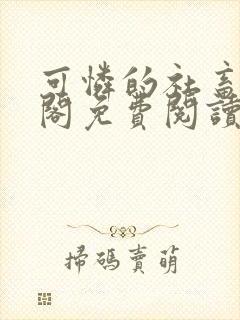 可憐的社畜
閣免費閱讀
掃碼賣萌